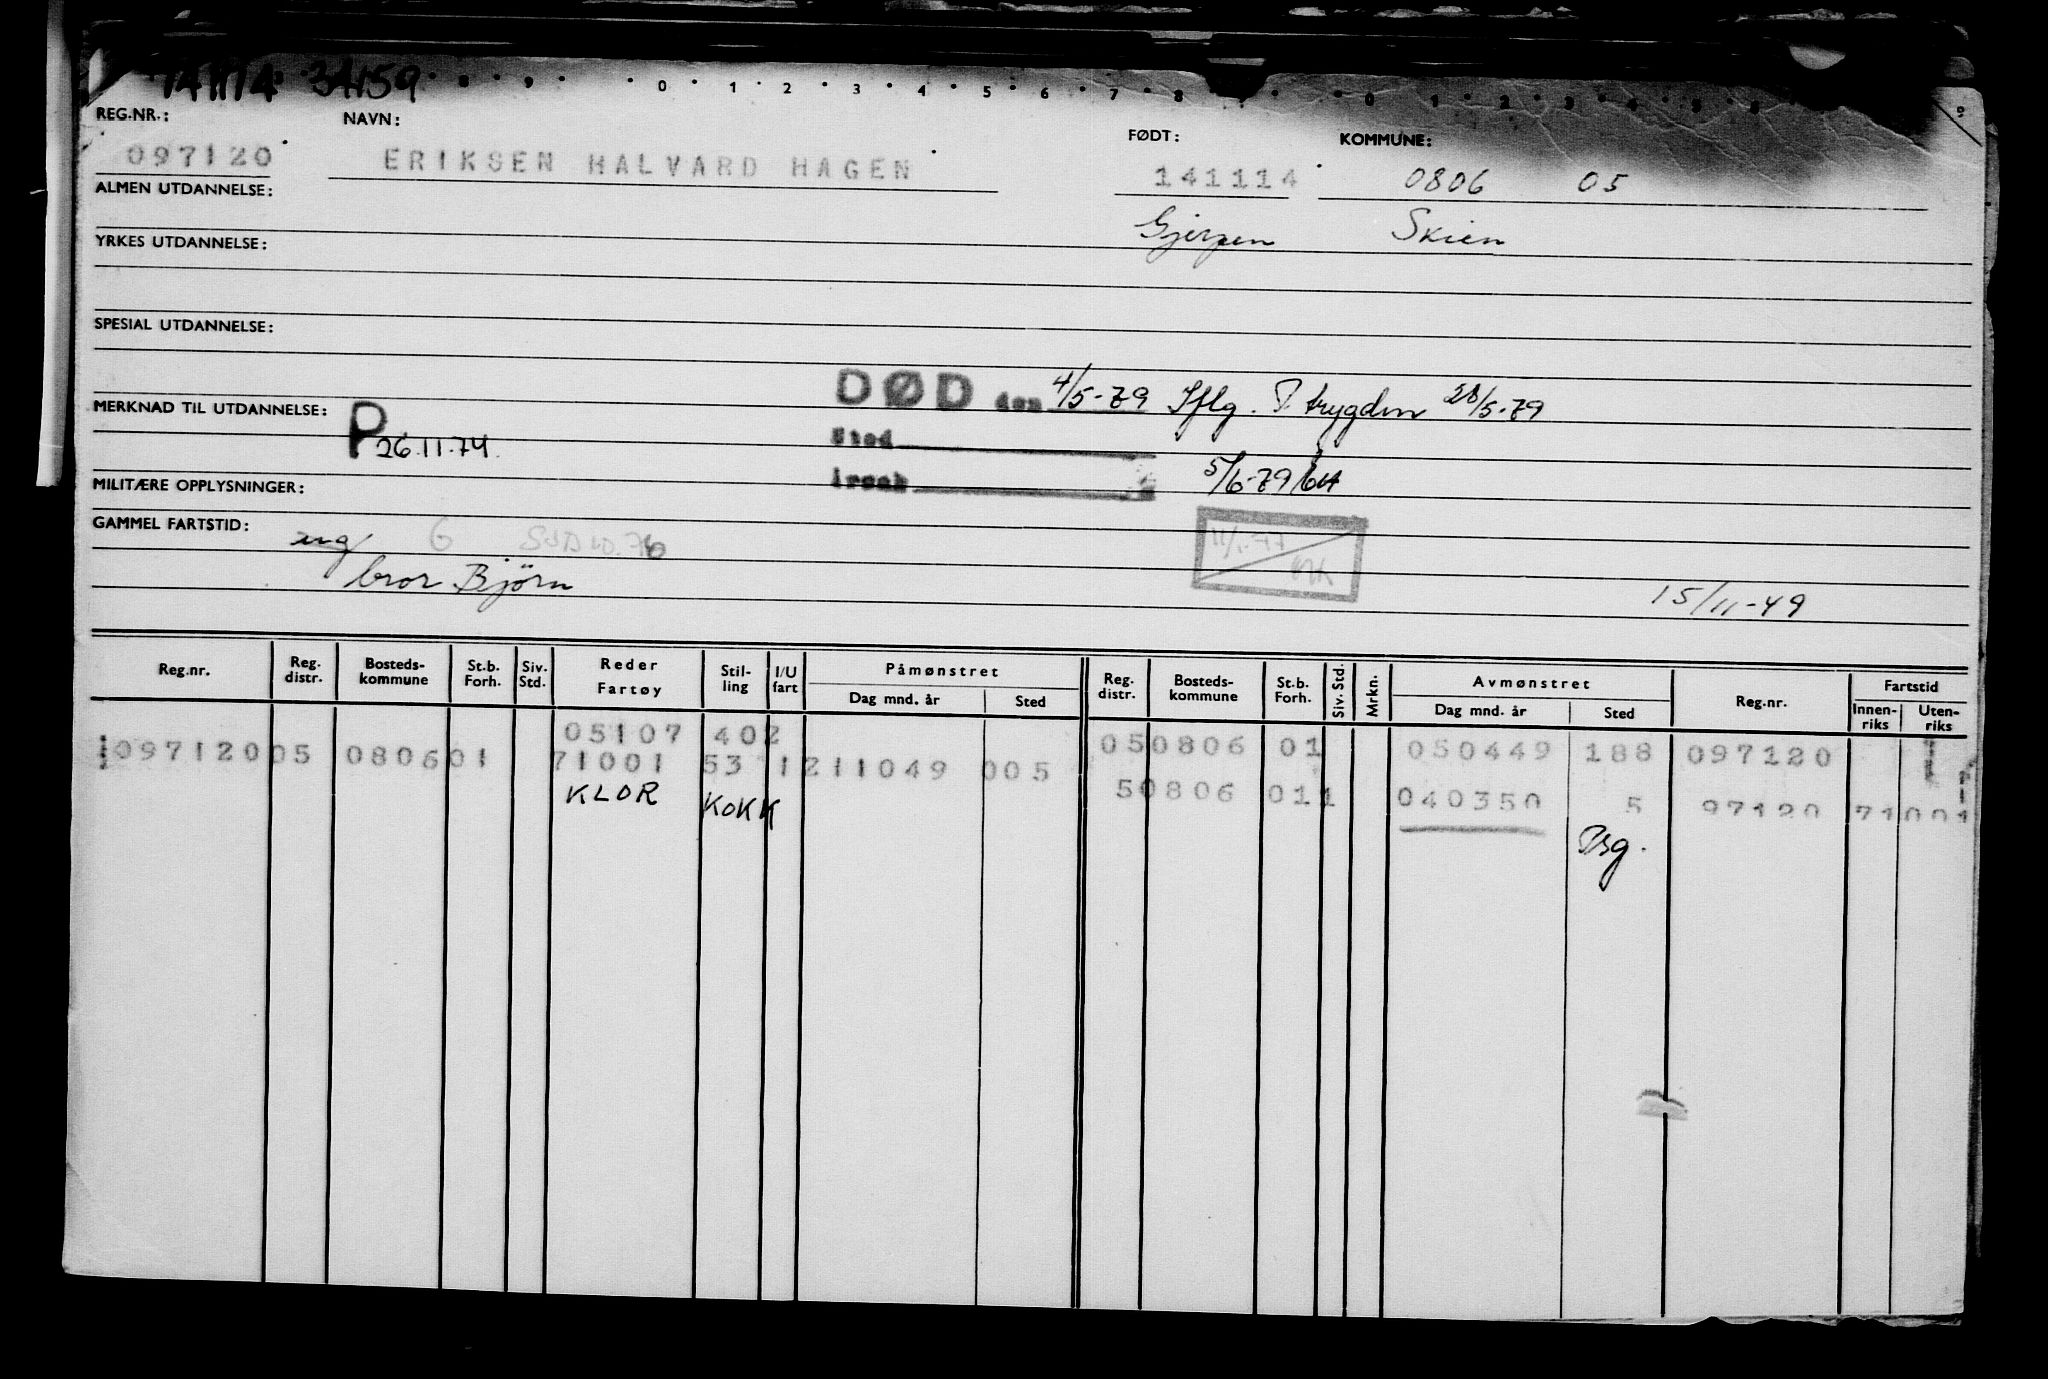 141114 34159
8 9 0 1 2 3 4 5 6 7 8 0 1 2 3 4 5 6
REG.NR.: NAVN: FØDT: KOMMUNE:
097120 ERIKSEN HALVARD HAGEN 141114 0806 05
ALMEN UTDANNELSE:
Gjerpen Skien
YRKES UTDANNELSE:
SPESIAL UTDANNELSE:
DØD den 4/5-79 Iflg. P. trygden 28/5-79
MERKNAD TIL UTDANNELSE:
P 26.11.74 Sted
årsak 5/6-79
MILITÆRE OPPLYSNINGER:
GAMMEL FARTSTID:
ug 6
11/1-77
bror Bjørn 15/11-49
Reg.nr. Reg. distr. Bosteds-kommune St.b. Forh. Siv. Std. Reder Fartøy Stil-ling I/U fart Påmønstret Dag mnd. år Sted Reg. distr. Bosteds-kommune St.b. Forh. Siv. Std. Mrkn. Avmønstret Dag mnd. år Sted Reg.nr. Fartstid Innen-riks Uten-riks
05107 402 050806 01 050449 188 097120
09712005 080601 71001 53 1211049 005
50806 011 040350 5 97120 71001
KLOR KOKK
Psg.